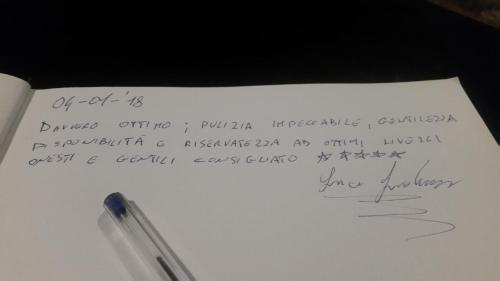 04-01-'18
DAVVERO OTTIMO; PULIZIA IMPECCABILE, GENTILEZZA
DISPONIBILITÀ E RISERVATEZZA AD OTTIMI LIVELLI
ONESTI E GENTILI CONSIGLIATO ☆☆☆☆☆